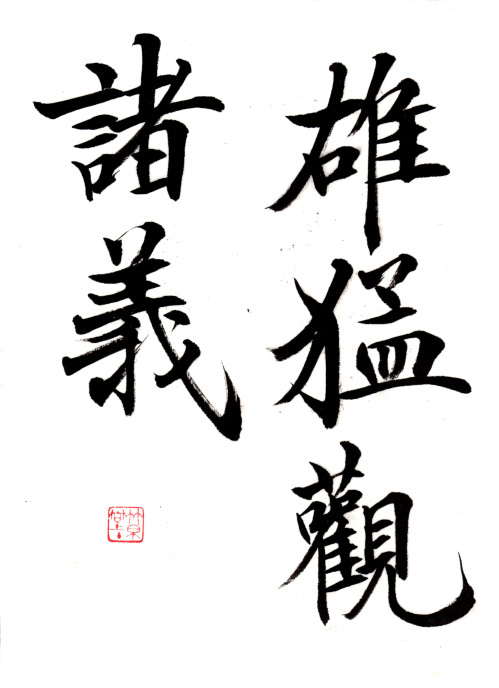 雄猛觀
諸義